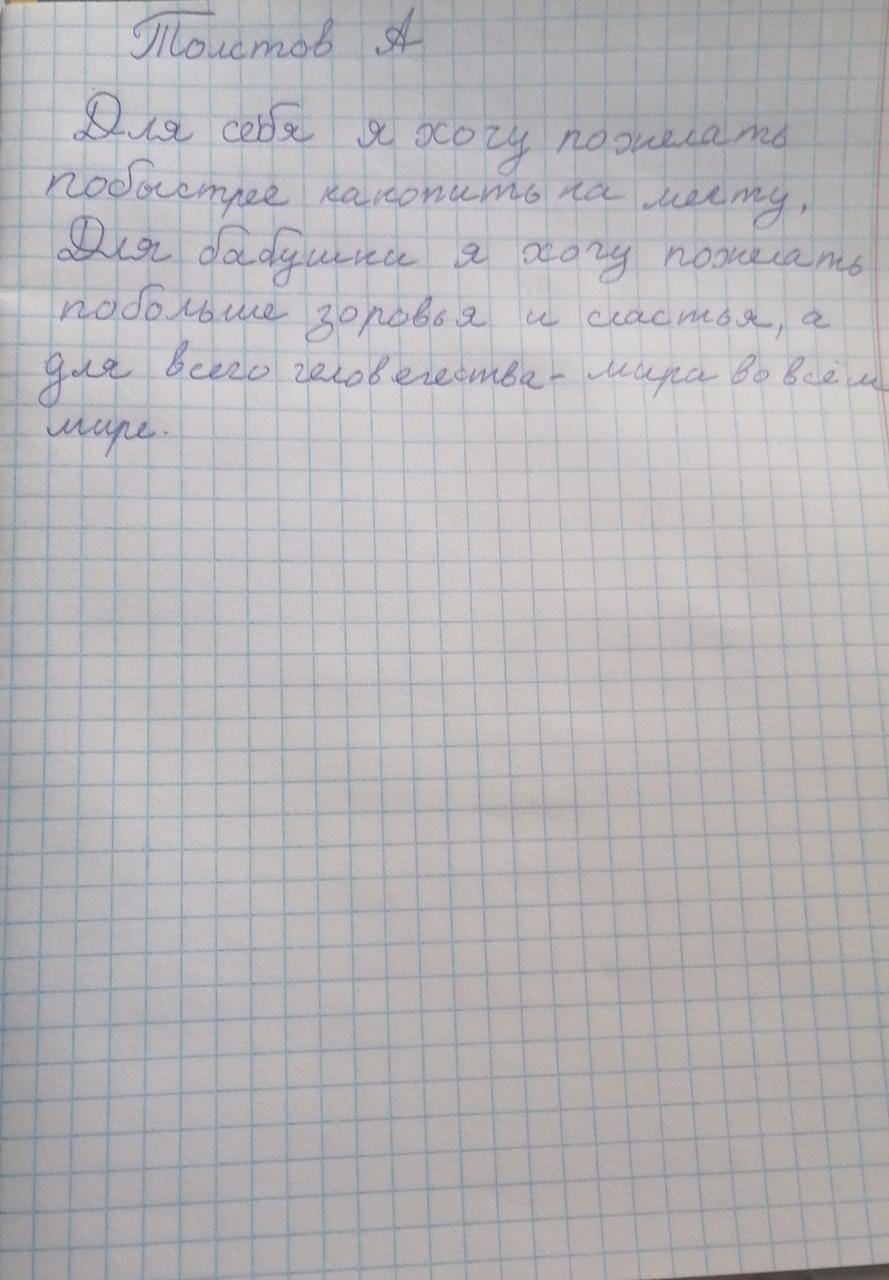 Толстов А
Для себя я хочу пожелать
побыстрее накопить на мечту,
Для бабушки я хочу пожелать
побольше зоровья и счастья, а
для всего человечества - мира во всём
мире.